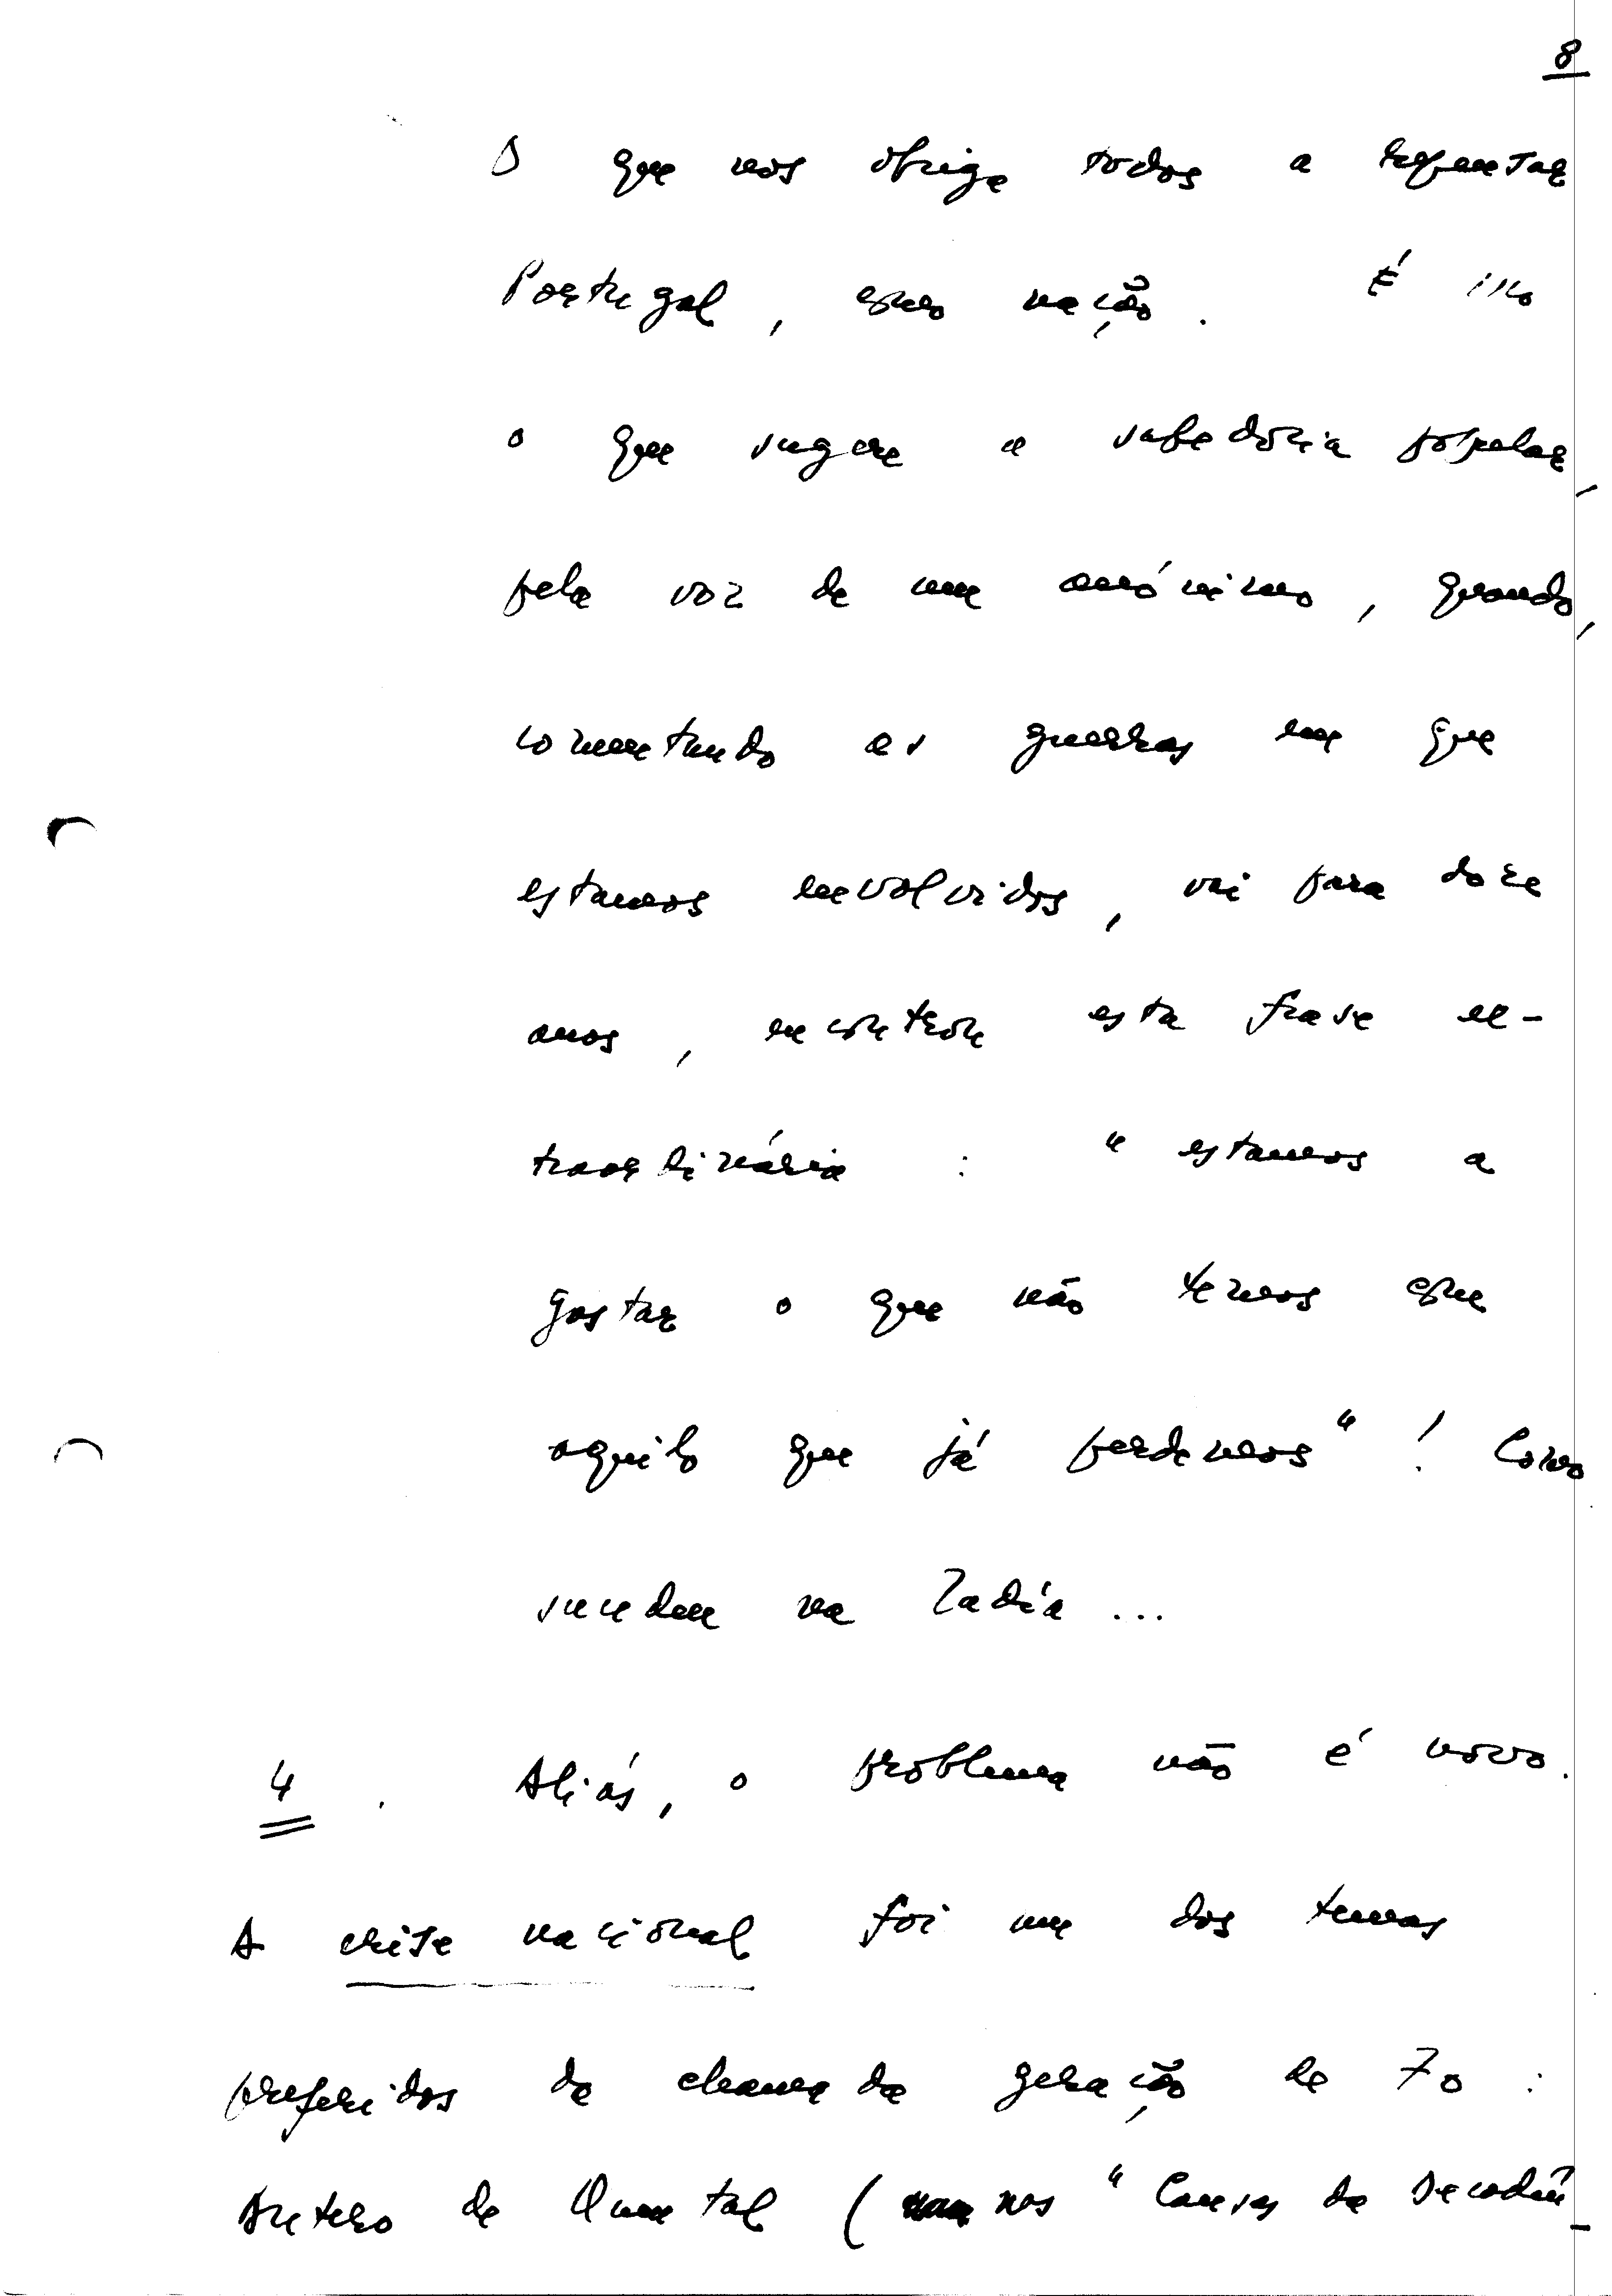 8
O que nos obriga todos a repensar
Portugal, como nação. É isso
o que sugere a sabedoria popular,
pela voz de um anónimo, quando,
comentando as guerras em que
estamos envolvidos, vai para doze
anos, encontrou esta frase ex-
traordinária : " estamos a
gastar o que não temos com
aquilo que já perdemos " ! Como
sucedeu na Zadia ...
4 . Aliás, o problema não é novo.
A crise nacional foi um dos temas
preferidos da chamada geração de 70 :
Antero de Quental ( nas " Causas da Decadên-